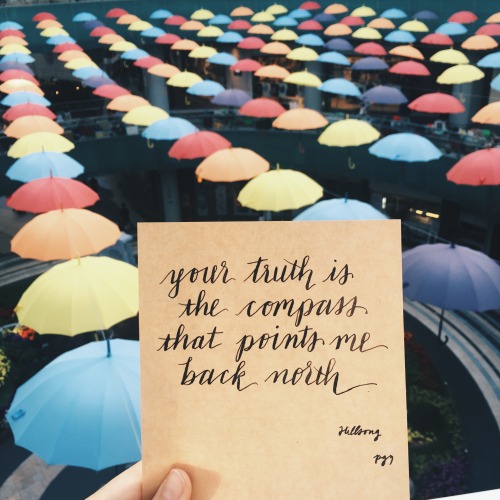 your truth is
the compass
that points me
back north
Hillsong